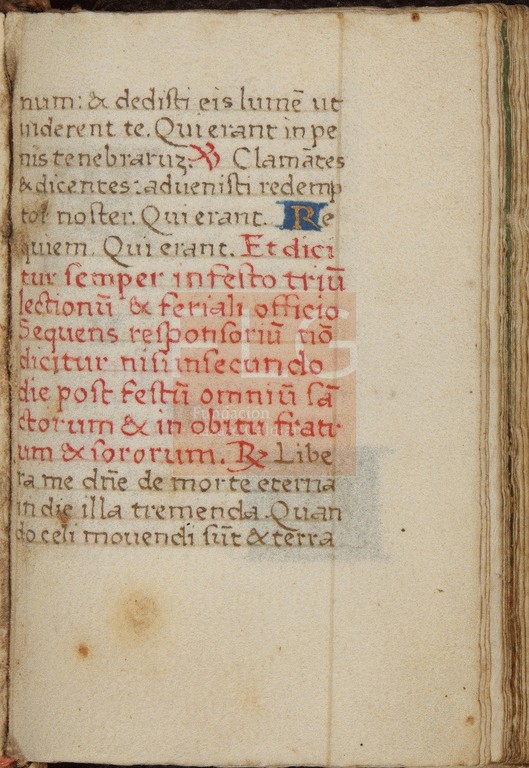 num: & dedisti eis lumē ut
uiderent te. Qui erant in pe
nis tenebraruꝫ. ℣ Clamātes
& dicentes: aduenisti redemp
tor noster. Qui erant. Re
quiem. Qui erant. Et dici
tur semper in festo triū
lectionū & feriali officio
Sequens responsoriū nō
dicitur nisi in secundo
die post festū omniū sā
ctorum & in obitu fratr
um & sororum. ℞ Libe
ra me dn̄e de morte eterna
in die illa tremenda. Quan
do celi mouendi sūt & terra
FLG
Fundación